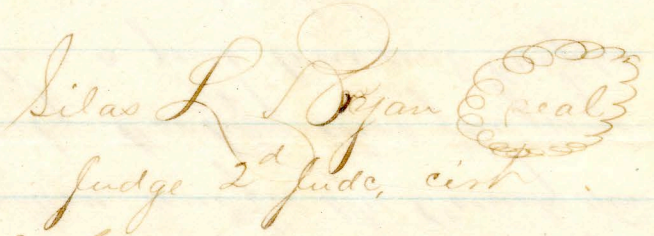 Silas L Bryan seal
Judge 2d Judc, cirt.